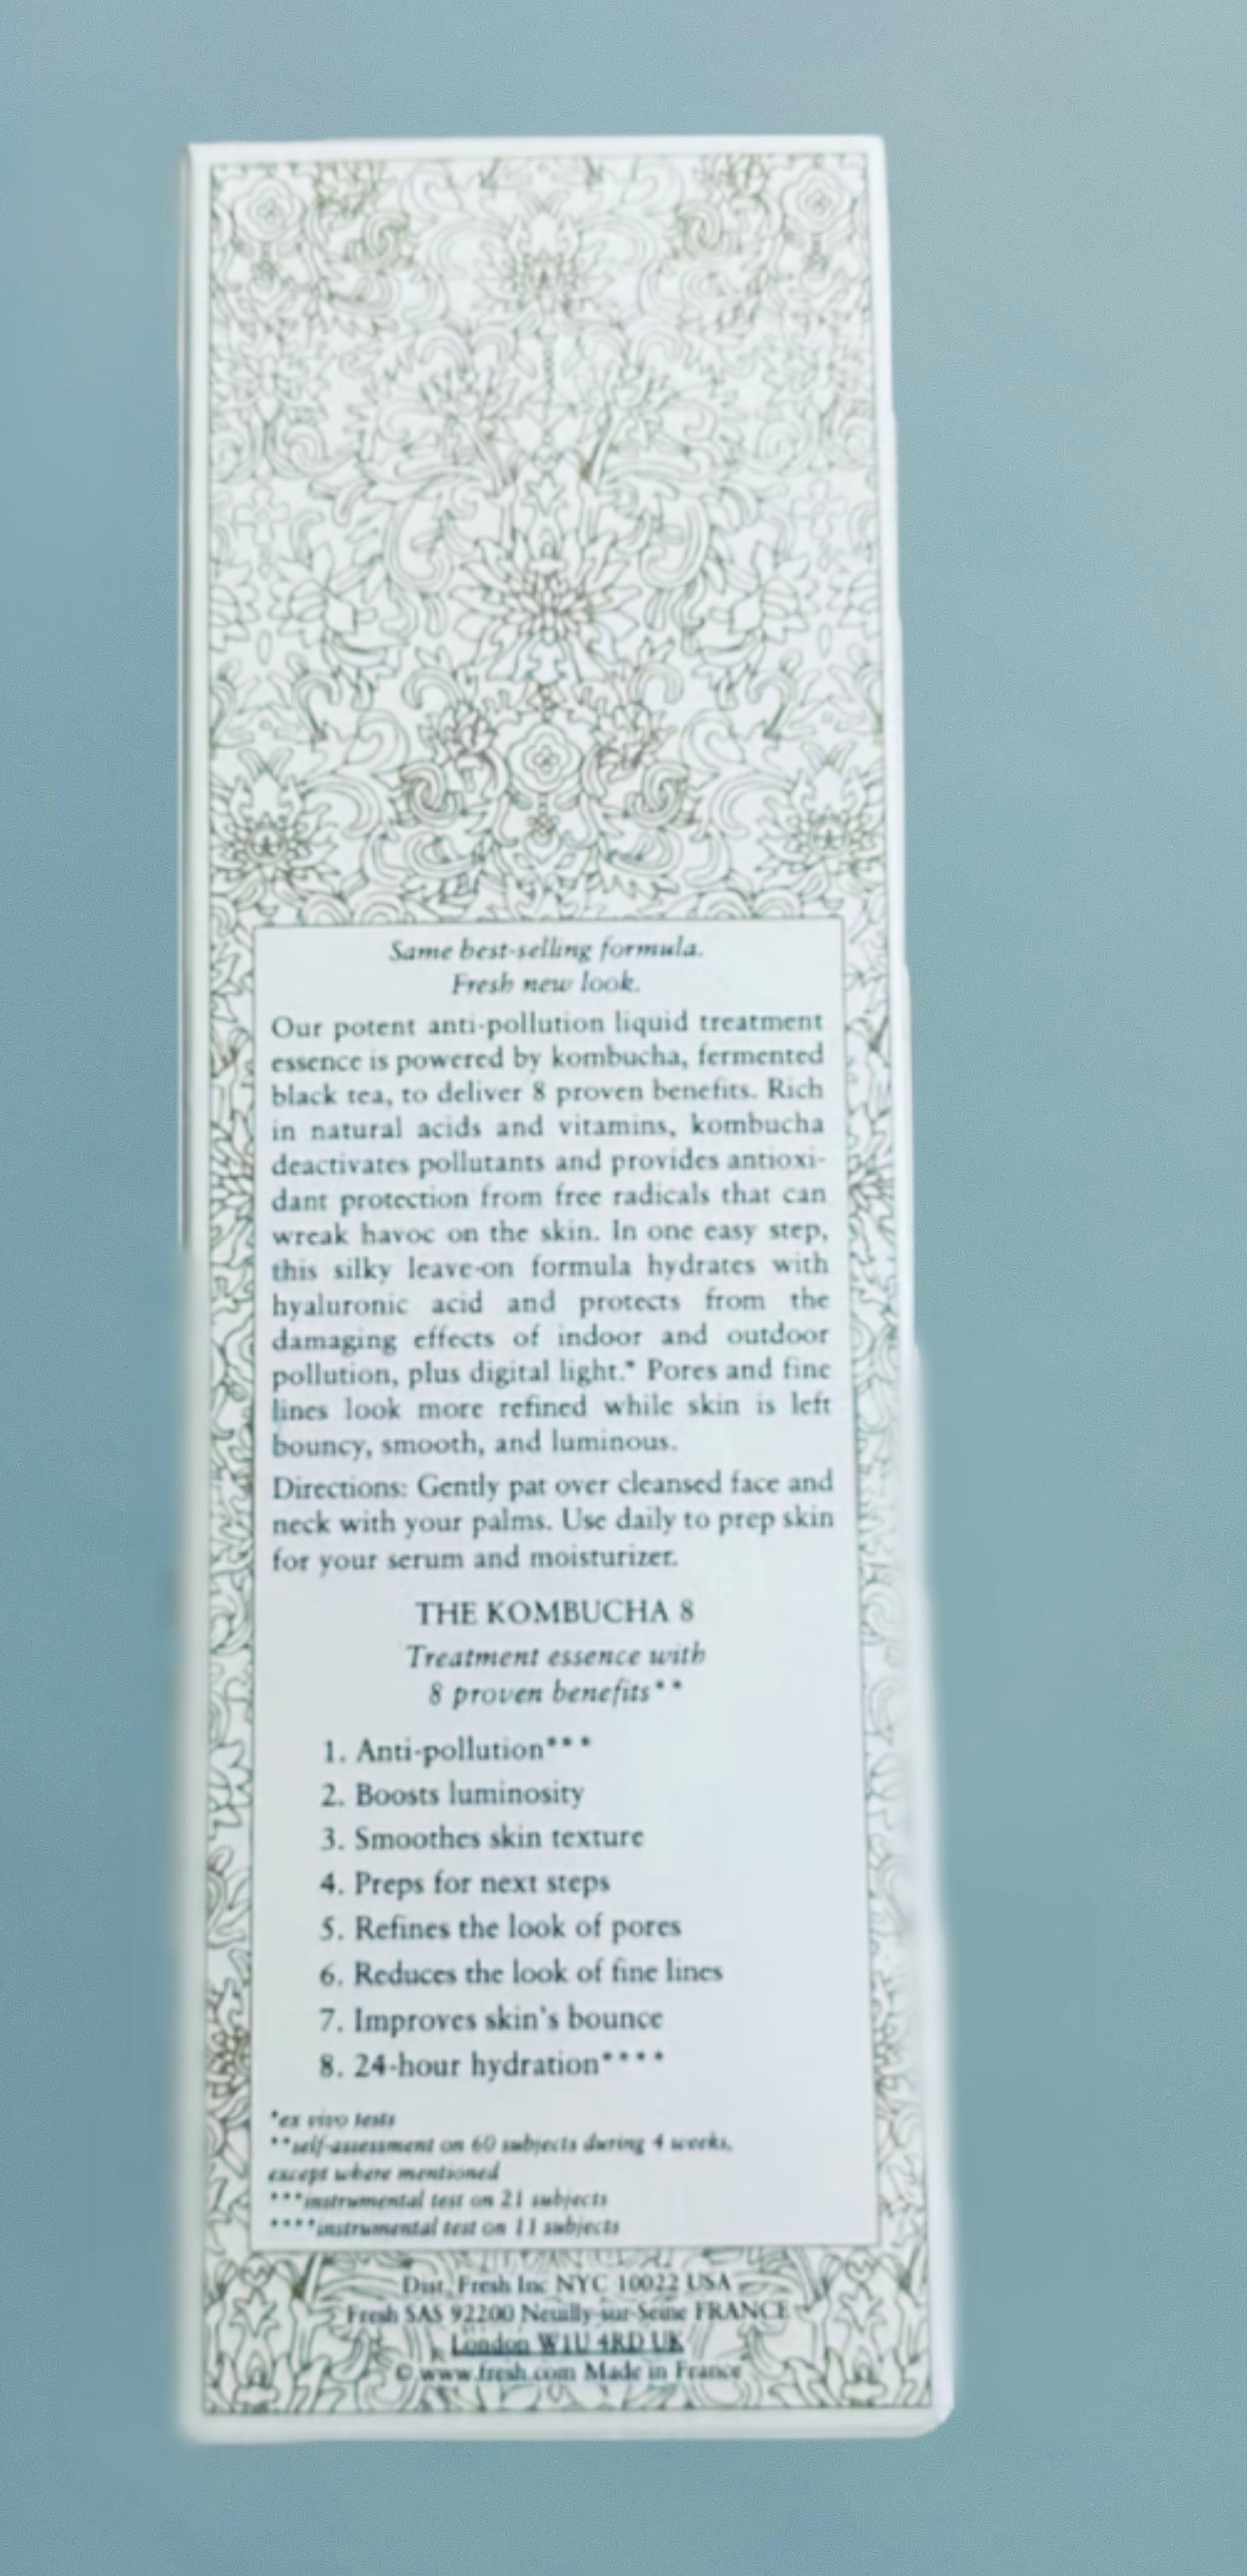 Same best-selling formula.
Fresh new look.
Our potent anti-pollution liquid treatment
essence is powered by kombucha, fermented
black tea, to deliver 8 proven benefits. Rich
in natural acids and vitamins, kombucha
deactivates pollutants and provides antioxi-
dant protection from free radicals that can
wreak havoc on the skin. In one easy step,
this silky leave-on formula hydrates with
hyaluronic acid and protects from the
damaging effects of indoor and outdoor
pollution, plus digital light.* Pores and fine
lines look more refined while skin is left
bouncy, smooth, and luminous.
Directions: Gently pat over cleansed face and
neck with your palms. Use daily to prep skin
for your serum and moisturizer.
THE KOMBUCHA 8
Treatment essence with
8 proven benefits**
1. Anti-pollution***
2. Boosts luminosity
3. Smoothes skin texture
4. Preps for next steps
5. Refines the look of pores
6. Reduces the look of fine lines
7. Improves skin's bounce
8. 24-hour hydration****
*ex vivo tests
**self-assessment on 60 subjects during 4 weeks,
except where mentioned
***instrumental test on 21 subjects
****instrumental test on 11 subjects
Dist. Fresh Inc NYC 10022 USA
Fresh SAS 92200 Neuilly-sur-Seine FRANCE
London W1U 4RD UK
© www.fresh.com Made in France